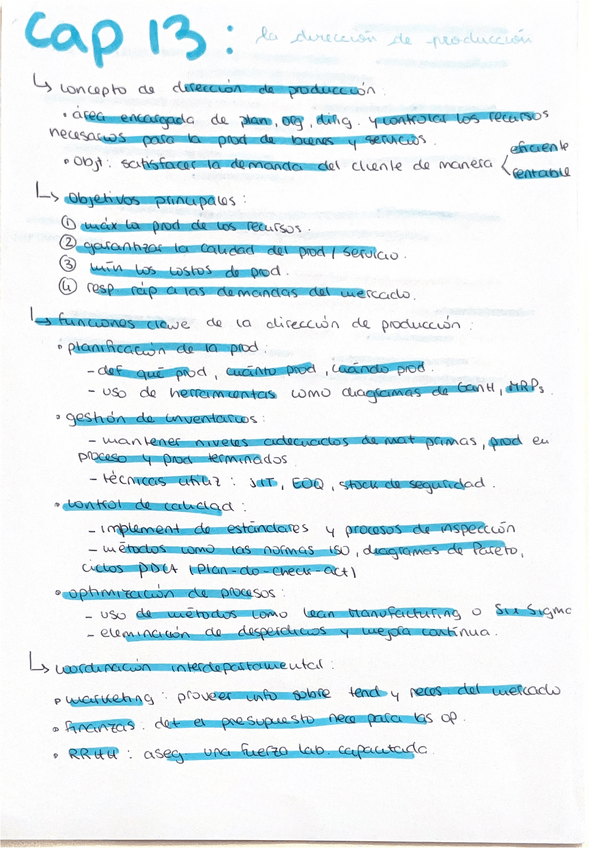 Cap 13: la dirección de producción
↳ concepto de dirección de producción:
• área encargada de plan, org, dirig. y controlar los recursos
necesarios para la prod de bienes y servicios.
• Objt: satisfacer la demanda del cliente de manera < eficiente
rentable
↳ Objetivos principales:
① máx la prod de los recursos.
② garantizar la calidad del prod / servicio.
③ mín los costos de prod.
④ resp ráp a las demandas del mercado.
↳ funciones clave de la dirección de producción:
• planificación de la prod:
- def qué prod, cuánto prod, cuándo prod.
- uso de herramientas como diagramas de Gantt, MRPs.
• gestión de inventarios:
- mantener niveles adecuados de mat primas, prod en
proceso y prod terminados.
- técnicas utiliz: JIT, EOQ, stock de seguridad.
• control de calidad:
- implement de estándares y procesos de inspección
- métodos como las normas ISO, diagramas de Pareto,
ciclos PDCA (Plan-do-check-act)
• optimización de procesos:
- uso de métodos como lean Manufacturing o Six Sigma
- eleminación de desperdicios y mejora continua.
↳ coordinación interdepartamental:
• marketing: proveer info sobre tend y neces del mercado
• finanzas: det el presupuesto nece para las op.
• RRHH: aseg una fuerza lab. capacitada.